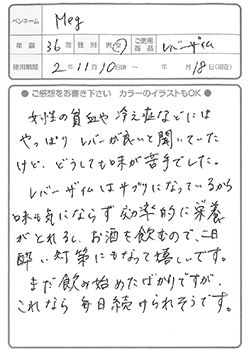 ペンネーム Meg
年齢 36才 性別 男・女 ご使用商品 レバーザイム
使用期間 2年11月10日頃 〜 月18日(現在)
●ご感想をお書き下さい カラーのイラストもOK●
女性の貧血や冷え症などには
やっぱりレバーが良いと聞いていた
けど、どうしても味が苦手でした。
レバーザイムはサプリになっているから
味も気にならず効率的に栄養
がとれるし、お酒を飲むので、二日
酔い対策にもなって嬉しいです。
まだ飲み始めたばかりですが、
これなら毎日続けられそうです。